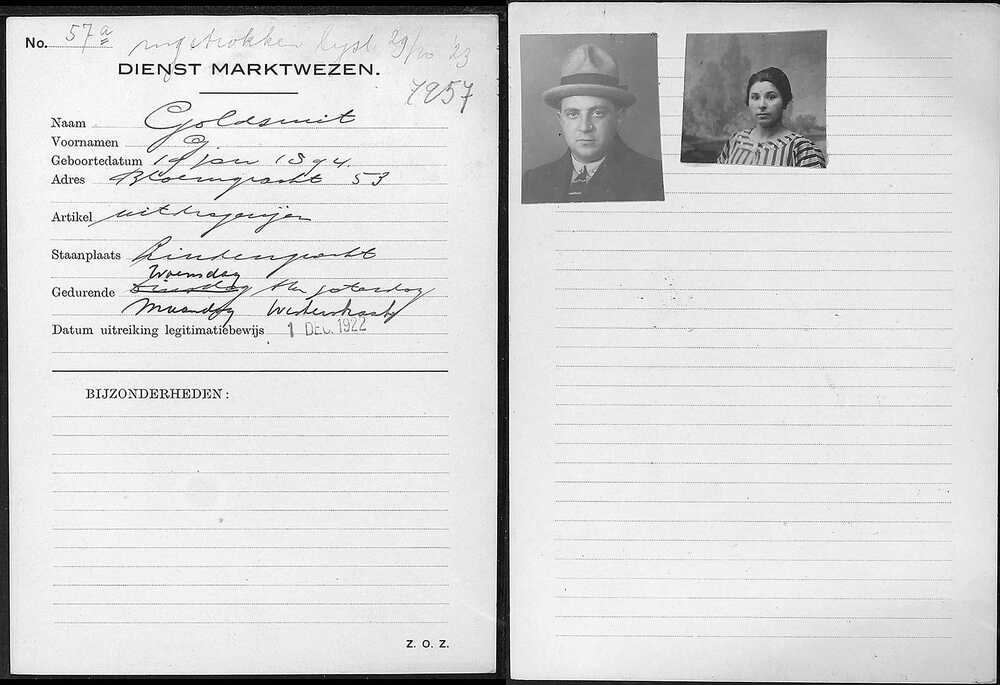 No. 57a ingetrokken lijst 29/10 '23
DIENST MARKTWEZEN.
7957
Naam Goldsmit
Voornamen G
Geboortedatum 19 jan 1894.
Adres Bloemgracht 53
Artikel uitdragerijen
Staanplaats Lindengracht
Woensdag
Gedurende Dinsdag zaterdag
Maandag Westerstraat
Datum uitreiking legitimatiebewijs 1 DEC. 1922
BIJZONDERHEDEN:
Z. O. Z.